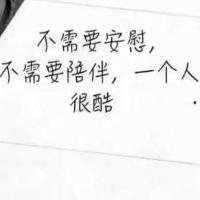 不需要安慰，
不需要陪伴，一个人
很酷